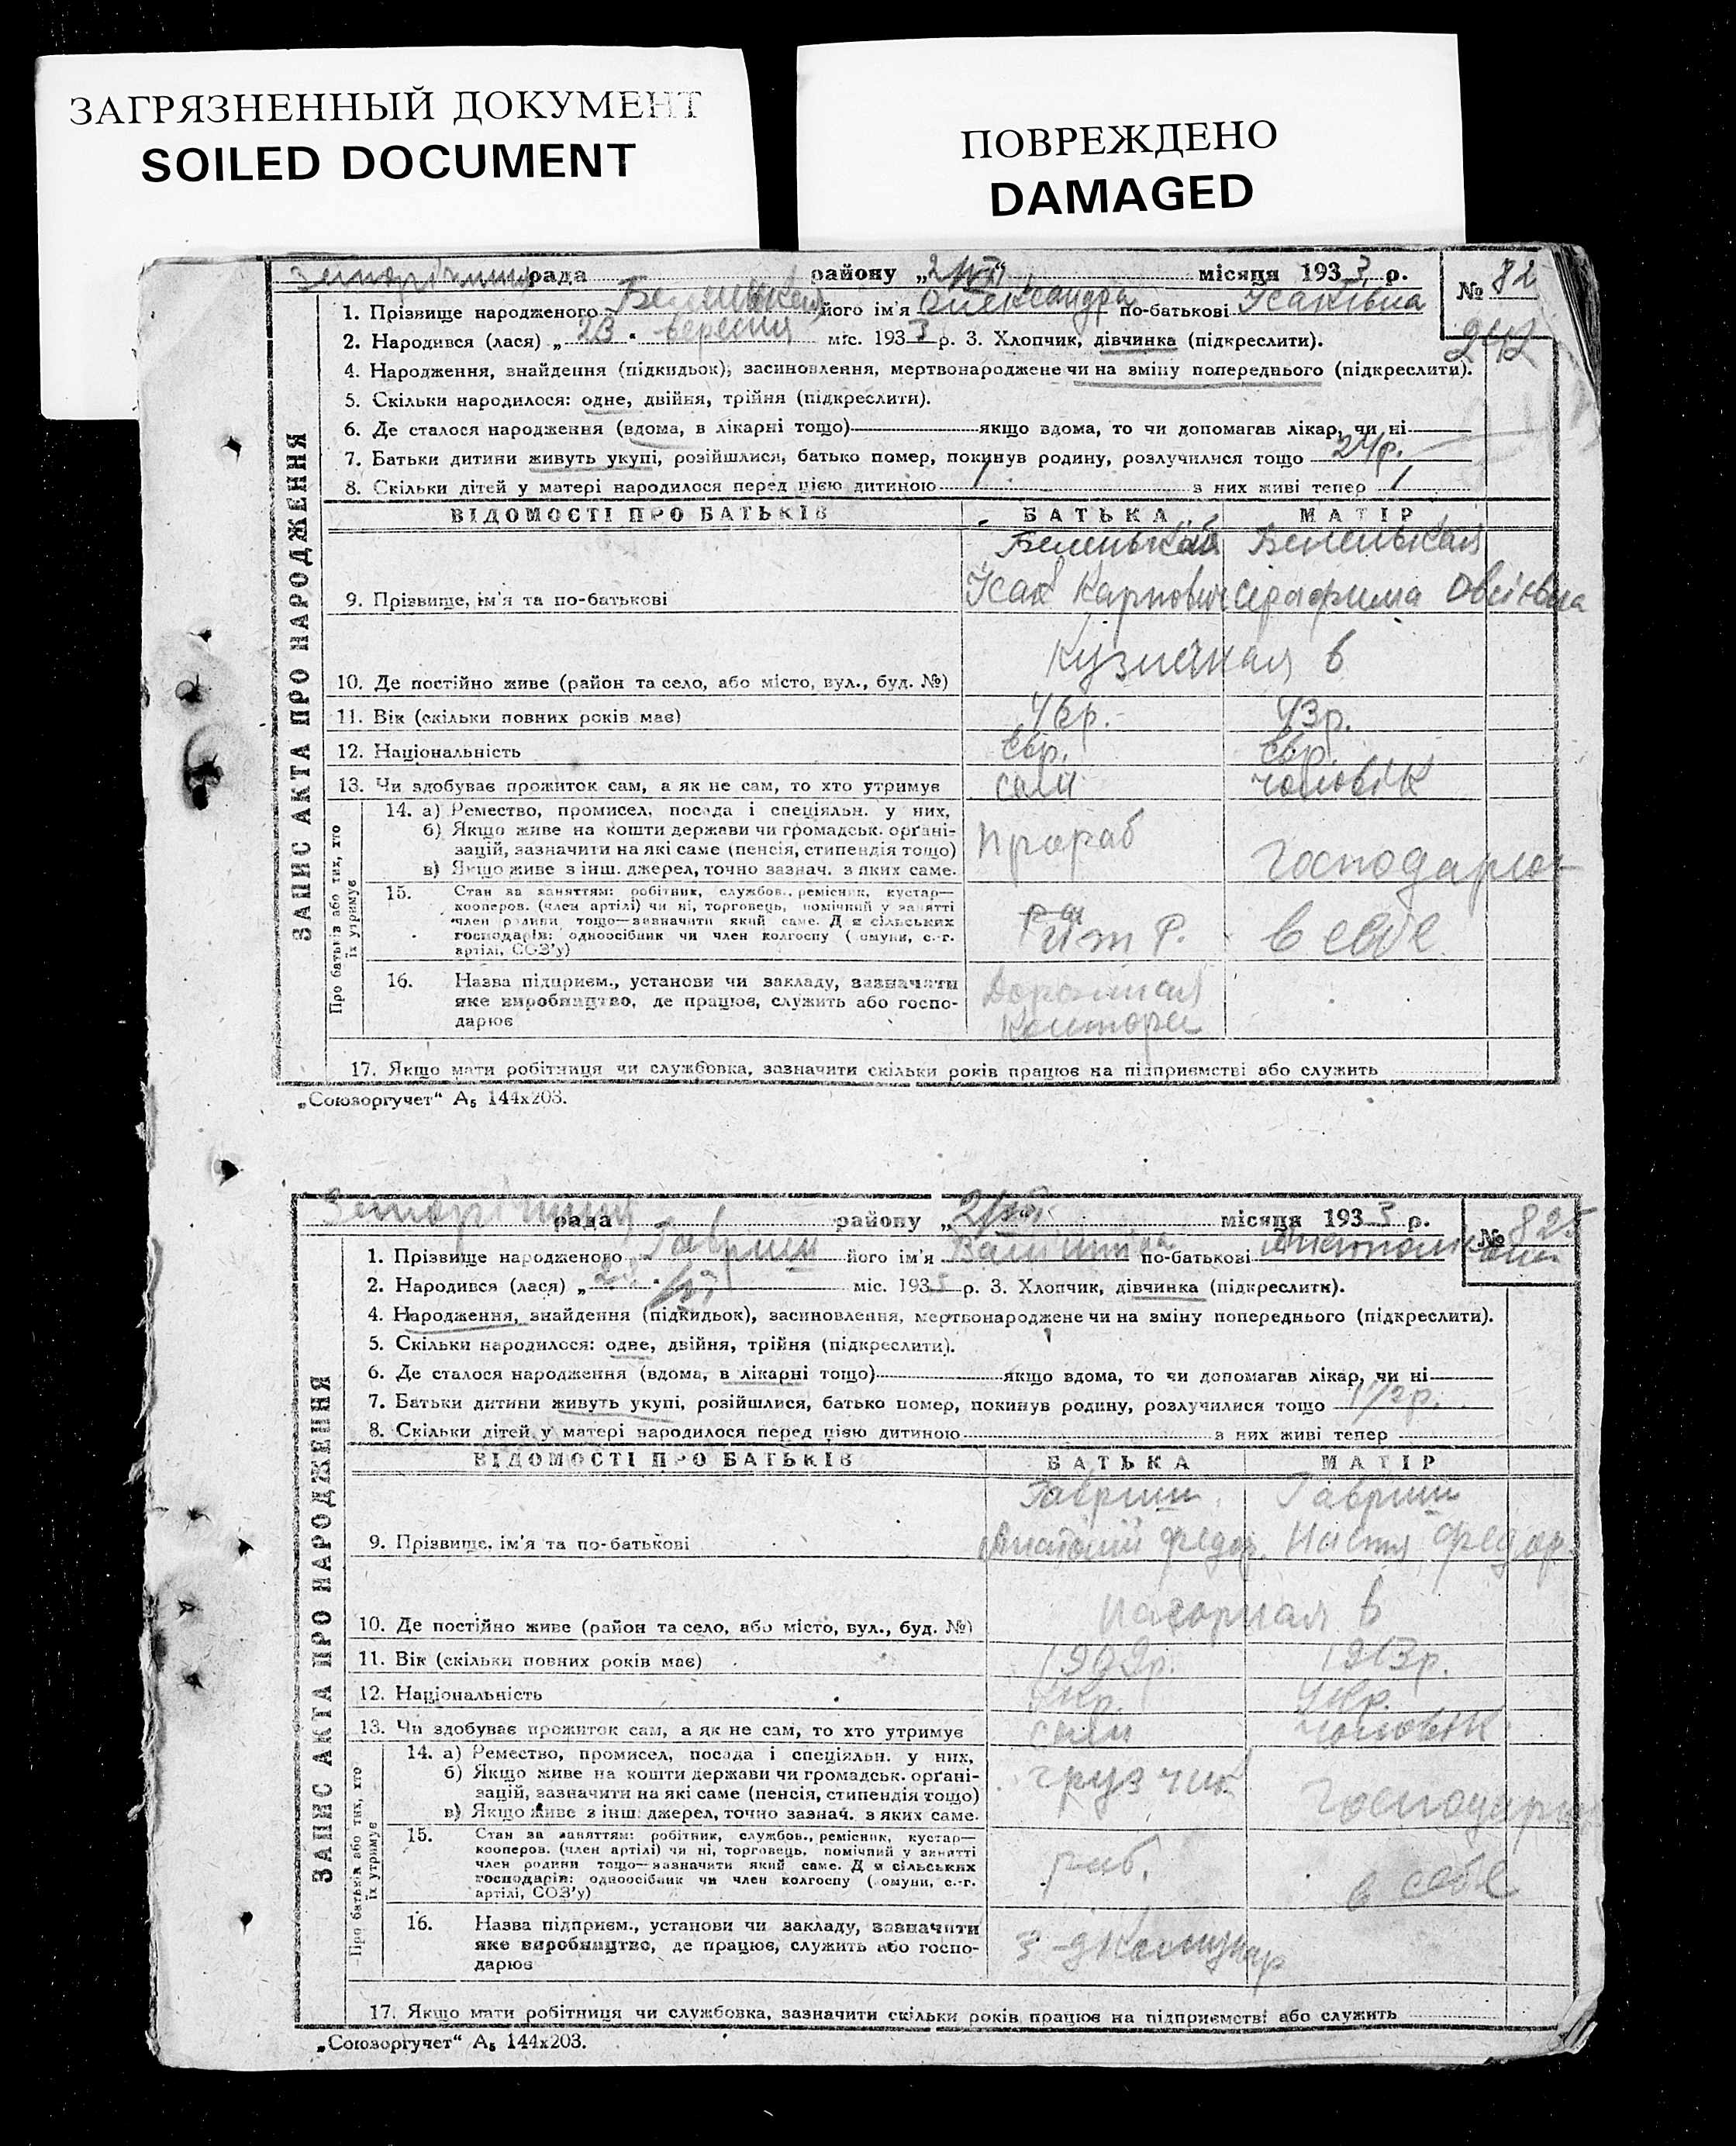 ЗАГРЯЗНЕННЫЙ ДОКУМЕНТ
SOILED DOCUMENT
ПОВРЕЖДЕНО
DAMAGED
рада району „2 місяця 1933 р. № 82
1. Прізвище народженого його ім'я Олександра по-батькові Ісаківна
242
2. Народився (лася) „23" вересня міс. 1933 р. 3. Хлопчик, дівчинка (підкреслити).
4. Народження, знайдення (підкидьок), засиновлення, мертвонароджене чи на зміну попереднього (підкреслити).
5. Скільки народилося: одне, двійня, трійня (підкреслити).
6. Де сталося народження (вдома, в лікарні тощо) якщо вдома, то чи допомагав лікар, чи ні
7. Батьки дитини живуть укупі, розійшлися, батько помер, покинув родину, розлучилися тощо 24р.
8. Скільки дітей у матері народилося перед цією дитиною 1 з них живі тепер 1
ЗАПИС АКТА ПРО НАРОДЖЕННЯ
ВІДОМОСТІ ПРО БАТЬКІВ БАТЬКА МАТІР
Беленькая
9. Прізвище, ім'я та по-батькові Ісак Карпович Серафима
Кузнечная 6
10. Де постійно живе (район та село, або місто, вул., буд. №)
11. Вік (скільки повних років має) 46р. 43р.
12. Національність євр. євр.
13. Чи здобуває прожиток сам, а як не сам, то хто утримує сам чоловік
Про батьків або тих, хто їх утримує
14. а) Ремество, промисел, посада і спеціяльн. у них,
б) Якщо живе на кошти держави чи громадськ. орґані-
зацій, зазначити на які саме (пенсія, стипендія тощо) прораб
в) Якщо живе з інш. джерел, точно зазнач. з яких саме. господарює
15. Стан за заняттям: робітник, службов., ремісник, кустар—
кооперов. (член артілі) чи ні, торговець, помічний у занятті
член родини тощо—зазначити який саме. Для сільських
господарів: одноосібник чи член колгоспу (комуни, с.-г.
артілі, СОЗ'у) итР. в себе
16. Назва підприєм., установи чи закладу, зазначити
яке виробництво, де працює, служить або госпо-
дарює контора
17. Якщо мати робітниця чи службовка, зазначити скільки років працює на підприємстві або служить
„Союзоргучет“ А₅ 144x203.
рада району „2 місяця 1933 р. № 825
1. Прізвище народженого його ім'я по-батькові
2. Народився (лася) „ міс. 193 р. 3. Хлопчик, дівчинка (підкреслити).
4. Народження, знайдення (підкидьок), засиновлення, мертвонароджене чи на зміну попереднього (підкреслити).
5. Скільки народилося: одне, двійня, трійня (підкреслити).
6. Де сталося народження (вдома, в лікарні тощо) якщо вдома, то чи допомагав лікар, чи ні
7. Батьки дитини живуть укупі, розійшлися, батько помер, покинув родину, розлучилися тощо 1 1/2 р.
8. Скільки дітей у матері народилося перед цією дитиною з них живі тепер
ЗАПИС АКТА ПРО НАРОДЖЕННЯ
ВІДОМОСТІ ПРО БАТЬКІВ БАТЬКА МАТІР
Гавриш Гавриш
9. Прізвище, ім'я та по-батькові Анатолій Федор. Настя Федор.
Нагорная 6
10. Де постійно живе (район та село, або місто, вул., буд. №)
11. Вік (скільки повних років має) 1909р. 1913р.
12. Національність укр. укр.
13. Чи здобуває прожиток сам, а як не сам, то хто утримує сам чоловік
Про батьків або тих, хто їх утримує
14. а) Ремество, промисел, посада і спеціяльн. у них,
б) Якщо живе на кошти держави чи громадськ. орґані-
зацій, зазначити на які саме (пенсія, стипендія тощо) грузчик
в) Якщо живе з інш. джерел, точно зазнач. з яких саме. господарює
15. Стан за заняттям: робітник, службов., ремісник, кустар—
кооперов. (член артілі) чи ні, торговець, помічний у занятті
член родини тощо—зазначити який саме. Для сільських
господарів: одноосібник чи член колгоспу (комуни, с.-г.
артілі, СОЗ'у) роб. в себе
16. Назва підприєм., установи чи закладу, зазначити
яке виробництво, де працює, служить або госпо-
дарює
17. Якщо мати робітниця чи службовка, зазначити скільки років працює на підприємстві або служить
„Союзоргучет“ А₅ 144x203.